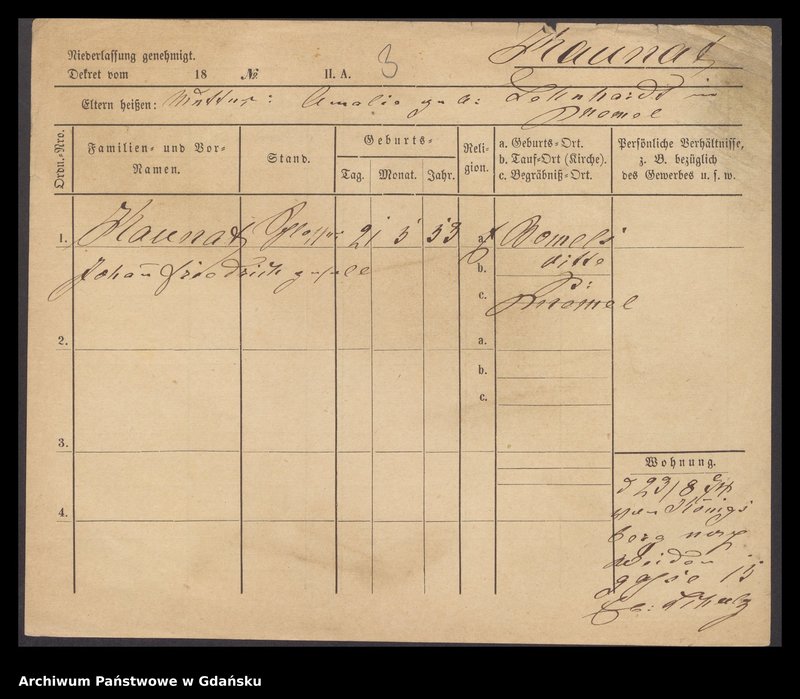 Niederlassung genehmigt.
Dekret vom 18 № II. A. 3
Kaunat
Eltern heißen: Mutter: Amalie geb: Lehnhardt in
Memel
Ordn.-Nro.
Familien- und Vor-
Namen.
Stand.
Geburts-
Tag. Monat. Jahr.
Reli-
gion.
a. Geburts-Ort.
b. Tauf-Ort (Kirche).
c. Begräbniß-Ort.
Persönliche Verhältnisse,
z. B. bezüglich
des Gewerbes u. s. w.
1. Kaunat 21 5 53 a.
Johan Friedrich
b. ditto
c. Memel
2. a.
b.
c.
3.
4.
Wohnung.
23/8
von Königs
berg nach
Weiden
gasse 15